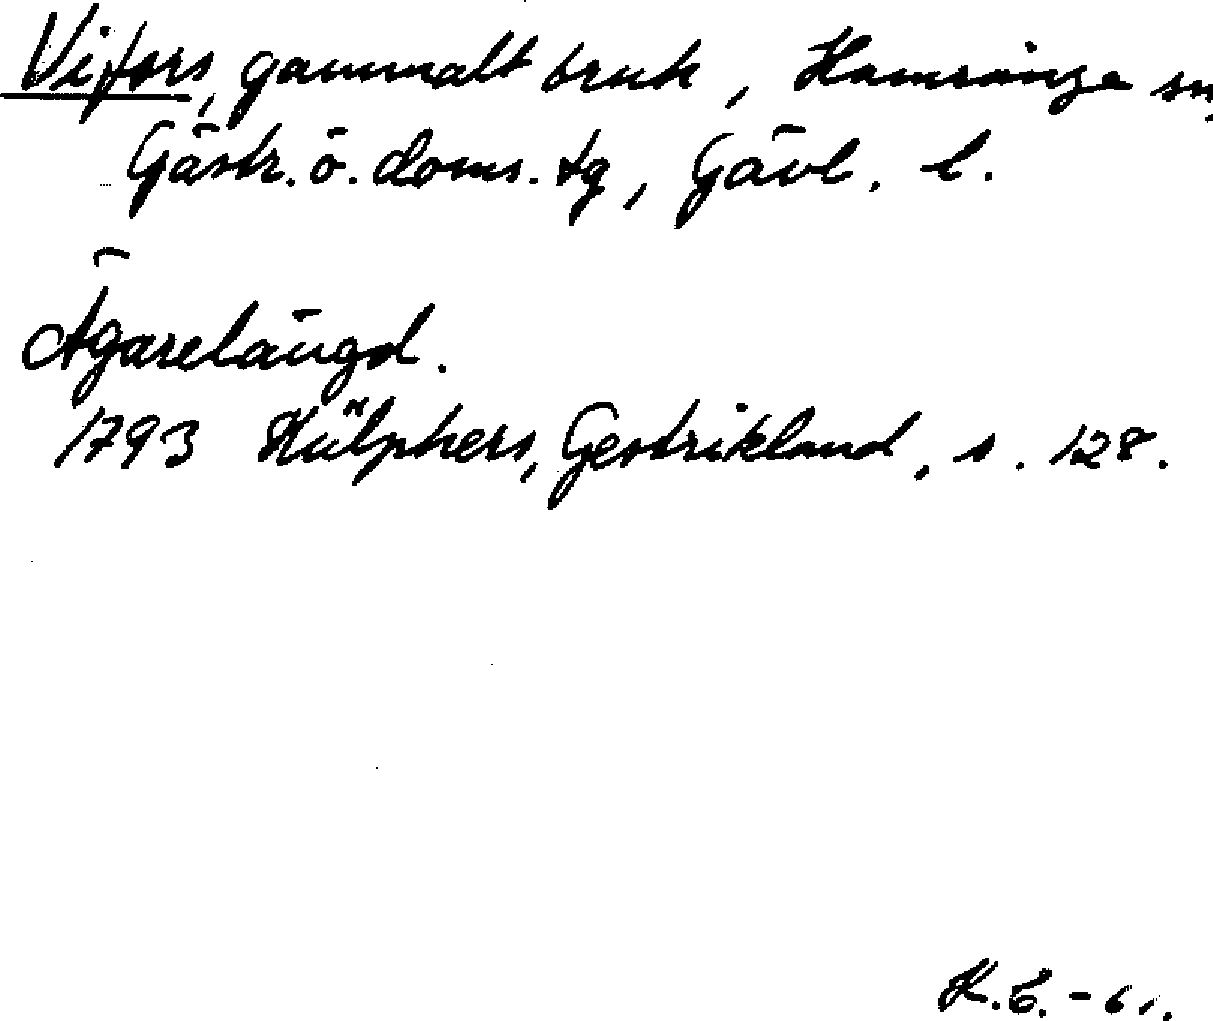 Vifors, gammalt bruk, Hamrånge sn,
Gästr. ö. doms. tg, Gävl. l.
Ägarelängd.
1793 Hülphers, Gestrikland, s. 128.
K.C.-61.